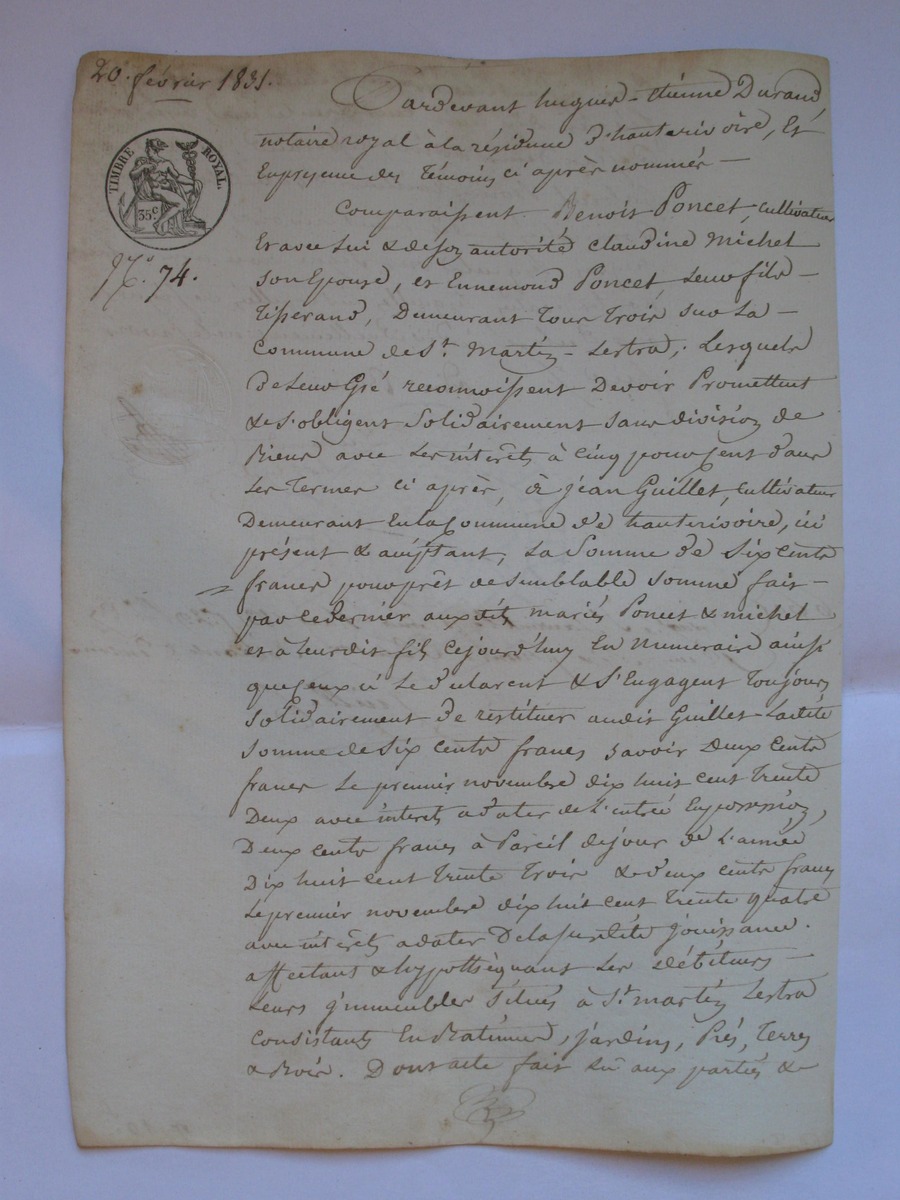 20. février 1831.
Pardevant hugues-étienne Durand,
notaire royal à la résidence d'hauterivoire, Et
En présence des Témoins ci après nommés —
TIMBRE ROYAL.
35 c
N.o 74.
Comparaissent Benoit Poncet, cultivateur
Et avec lui & de son autorité claudine Michel
son Epouse, et Ennemond Poncet, Leur fils —
Tisserand, Demeurant Tous Trois sur La —
Commune de St. Martin-Lestra; Lesquels
de Leur Gré reconnoissent Devoir Promettent
& s'obligent Solidairement sans division de
Biens avec Les intérêts à cinq pour cent dans
Les Termes ci après, à jean Guillet, cultivateur
Demeurant En la Commune de hauterivoire, ici
présent & acceptant, La Somme de Six cents
francs pour prêt de semblable somme fait —
par ce dernier aux dits mariés Poncet & michel
et à leur dit fils cejourd'huy En Numeraire ainsi
que ceux ci Le déclarent & s'Engagent Toujours
Solidairement de restituer audit Guillet Ladite
Somme de Six cents francs savoir Deux Cents
francs Le premier novembre dix huit cent trente
Deux avec intérêts à dater de L'entrée En possession,
Deux cents francs à Pareil dejour de L'année
Dix huit cent trente Trois & deux cents francs
Le premier novembre dix huit cent trente quatre
avec intérêts a dater De la susdite jouissance.
affectant & hypothéquant Les débiteurs —
Leurs jmmeubles situés à St. martin Lestra
Consistants En Batiment, jardins, Prés, Terres
& Bois. Dont acte fait lu aux parties &